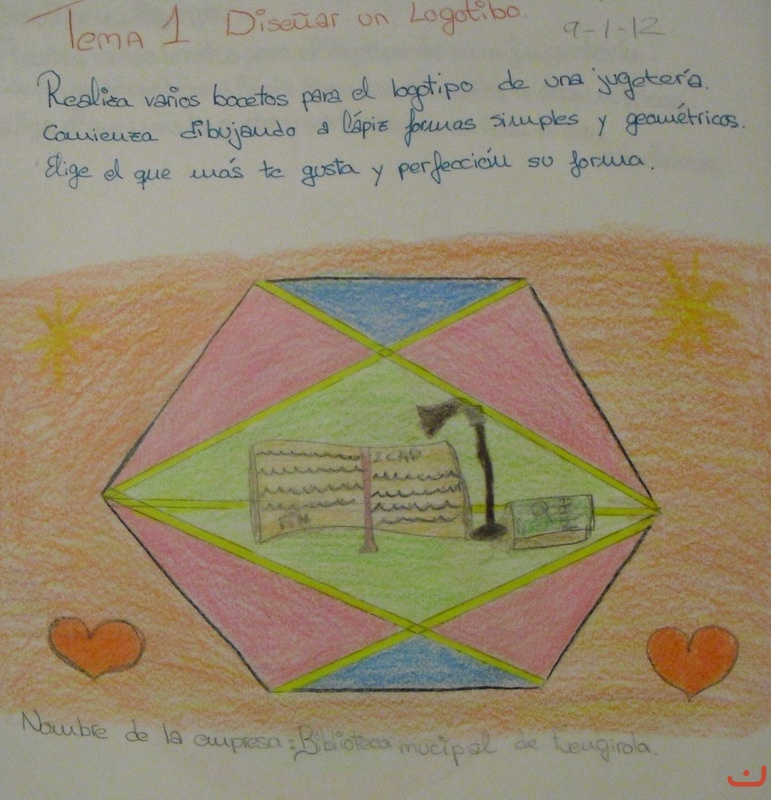 Tema 1 Diseñar un Logotibo. 9-1-12
Realiza varios bocetos para el logotipo de una jugetería.
Comienza dibujando a lápiz formas simples y geométricos.
Elige el que más te gusta y perfección su forma.
2 CAP
FIN
Nombre de la empresa: Biblioteca mucipal de fuengirola.